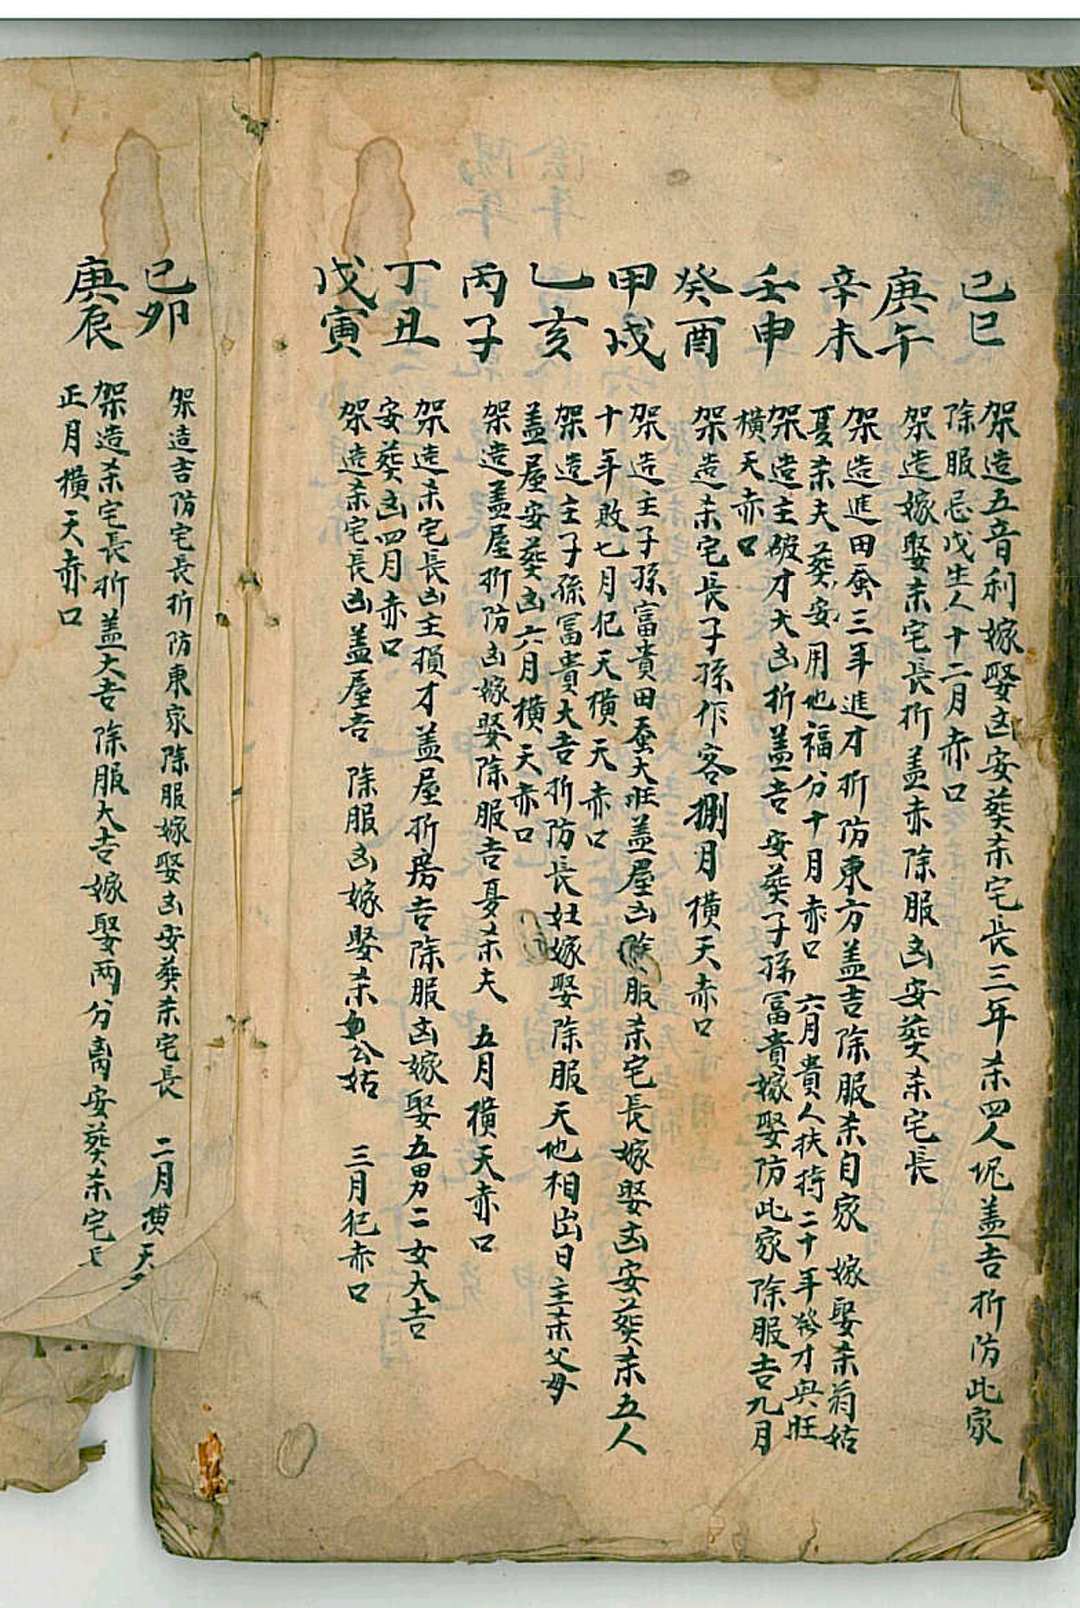 己巳
架造五音利嫁娶凶安葬杀宅長三年杀四人坭盖吉折防此家
除服忌戊生人十二月赤口
庚午
架造嫁娶杀宅長折盖赤除服凶安葬杀宅長
辛未
架造進田蚕三年進才折防東方盖吉除服杀自家 嫁娶杀翁姑
夏杀夫葬安用他福分十月赤口 六月貴人扶持二十年發才興旺
壬申
架造主破才大凶折盖吉安葬子孫富貴嫁娶防此家除服吉九月
橫天赤口
癸酉
架造杀宅長子孫作客捌月橫天赤口
甲戌
架造主子孫富貴田蚕大旺盖屋凶除服杀宅長嫁娶凶安葬杀五人
十年敗七月犯天橫天赤口
乙亥
架造主子孫富貴大吉折防長妇嫁娶除服天地相出日主杀父母
盖屋安葬凶六月橫天赤口
丙子
架造盖屋折防凶嫁娶除服吉夏杀夫 五月橫天赤口
丁丑
架造杀宅長凶主損才盖屋折房吉除服凶嫁娶五男二女大吉
安葬凶四月赤口
戊寅
架造杀宅長凶盖屋吉 除服凶嫁娶杀公姑 三月犯赤口
己卯
架造吉防宅長折防東家除服嫁娶凶安葬杀宅長 二月橫天
庚辰
架造杀宅長折盖大吉除服大吉嫁娶两分离安葬杀宅
正月橫天赤口